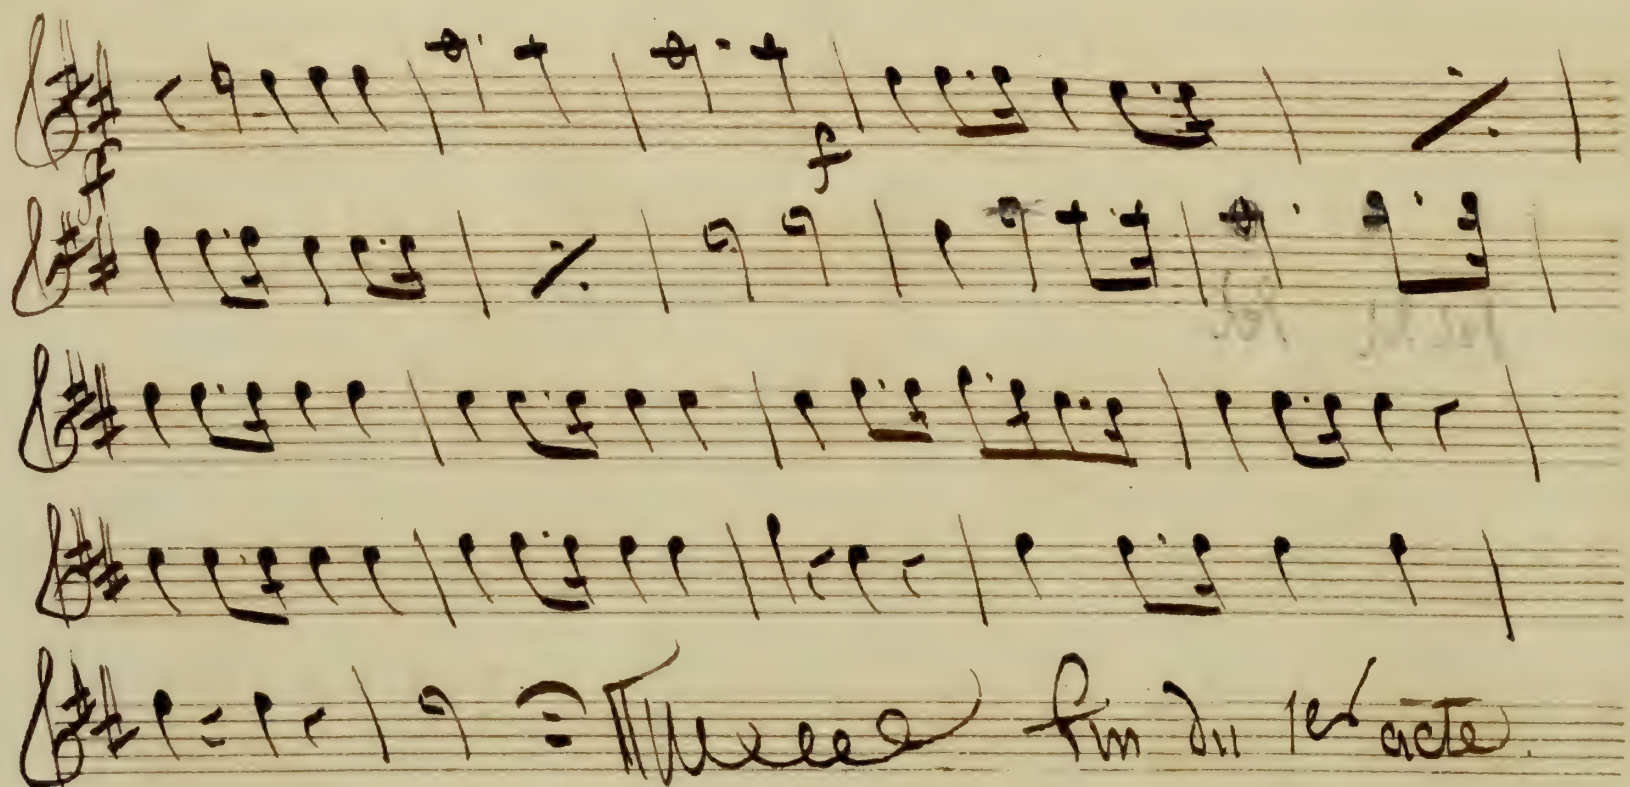 f
f
fin du 1er acte.